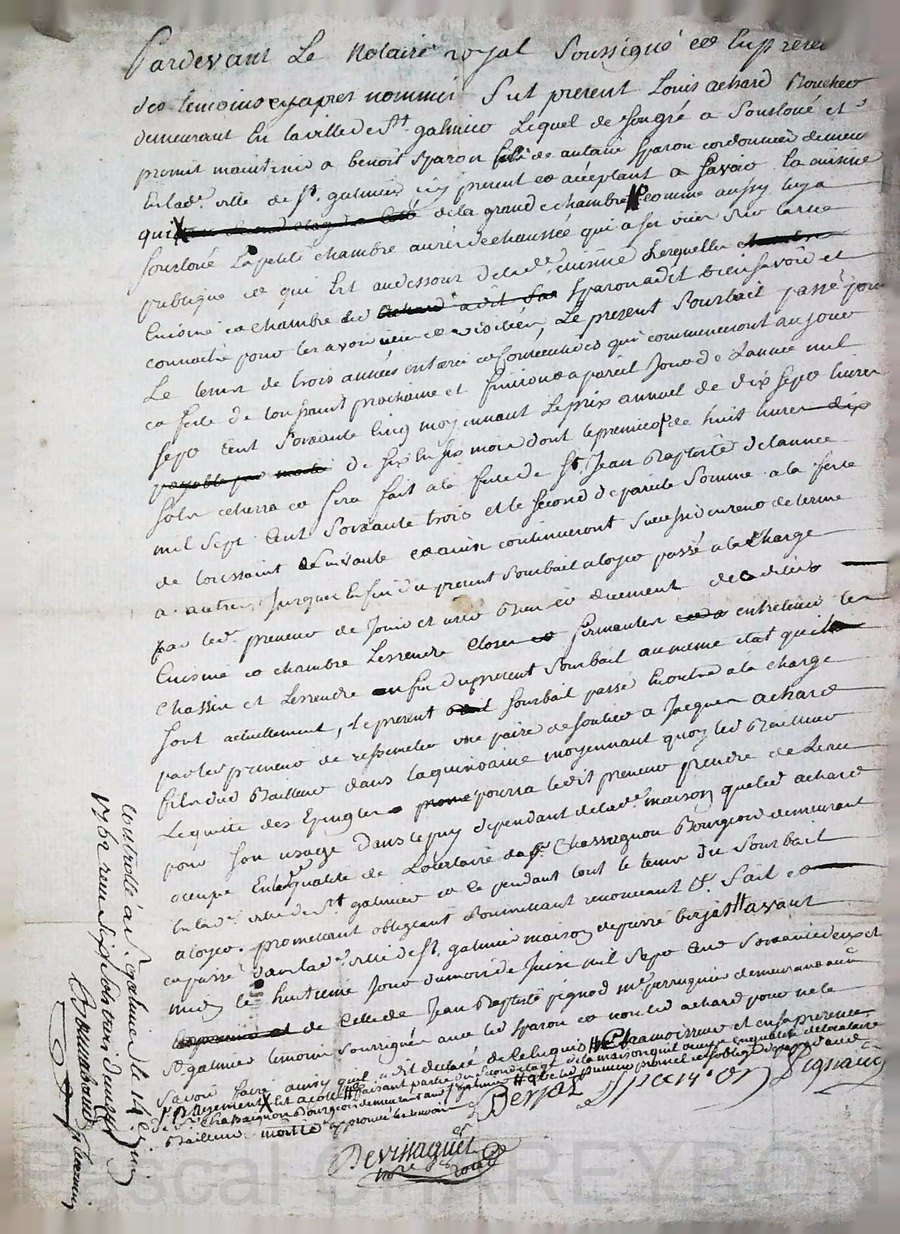 Pardevant Le Notaire royal Soussigné et En presence
des temoins cyapres nommés fut present Louis achard Boucher
demeurant En la ville de St galmier Lequel de son gré a Sousloué et
promit maintenir a benoit Sparon fils de antoine Sparon cordonnier demeurant
En lad. ville de St. galmier icy present et acceptant a Savoir la cuisine
qui de la grande chambre comme aussy luy a
sousloué La petite chambre au rés de chaussée qui a son sur La rue
publique et qui Est audessous de lad.e cuisine Lesquelles
Cuisine et chambre led Sparon a dit bien Savoir et
connoitre pour les avoir vües et visitées, Le present Sousbail passé pour
Le tems de trois années entieres et consecutives qui commenceront au jour
et feste de toussaint prochaine et finiront a pareil Jour de L'année mil
sept Cent Soixante Cinq moyennant Le prix annuel de dix sept livres
payable de six En six mois dont le premier de huit livres dix
sols Echerra et sera fait a la feste de St. Jean Baptiste de l'année
mil Sept Cent Soixante trois et le second de pareille Somme a la feste
de toussaint suivante et ainsi continueront Successivement de terme
a autre, Jusques En fin du present Sousbail a loyer passé a la Charge
par led. preneur de Jouir et user bien et duement desdites
Cuisine et chambre Les rendre Closes fermantes entretenir les
Chassis et Les rendre En fin du present Sousbail au meme état quils
sont actuellement, le present Sousbail passé Encontre a la charge
par led preneur de ressemeler une paire de soulier a Jacques achard
fils dud Bailleur dans la quinzaine moyennant quoy led Bailleur
Le quitte des Epingles pourra ledit preneur prendre de L'eau
pour Son usage dans le puy dependant de lad.e maison que led achard
occupe En qualité de Locataire de Sr. Chassagnon Bourgeois demeurant
En lad.e ville de St galmier et ce pendant tout le tems du Sousbail
a loyer. promettant obligeant Soumettant renonceant &. fait et
et passé dans lad.e ville de St. galmier maison de pierre berjat avant
midy le huitieme Jour du mois de Juin mil Sept Cent Soixante deux et
de Jean Baptiste pignod me. perruquier demeurant aud
St. galmier temoins Soussignés avec led Sparon et non led achard pour ne le
Savoir faire aussy quil a dit declaré de Ce Enquis et en sa presence
faisant partie du Second étage de la maison qu'il occupe En qualité de locataire
de Sr. Chassagnon Bourgeois demeurant a St galmier
Bailleur
Berjat Sparon Pignaud
Devissaguet
nore royal
controllé a St. galmier le 14e Juin
1762 reçu six sols
Bonnabaud